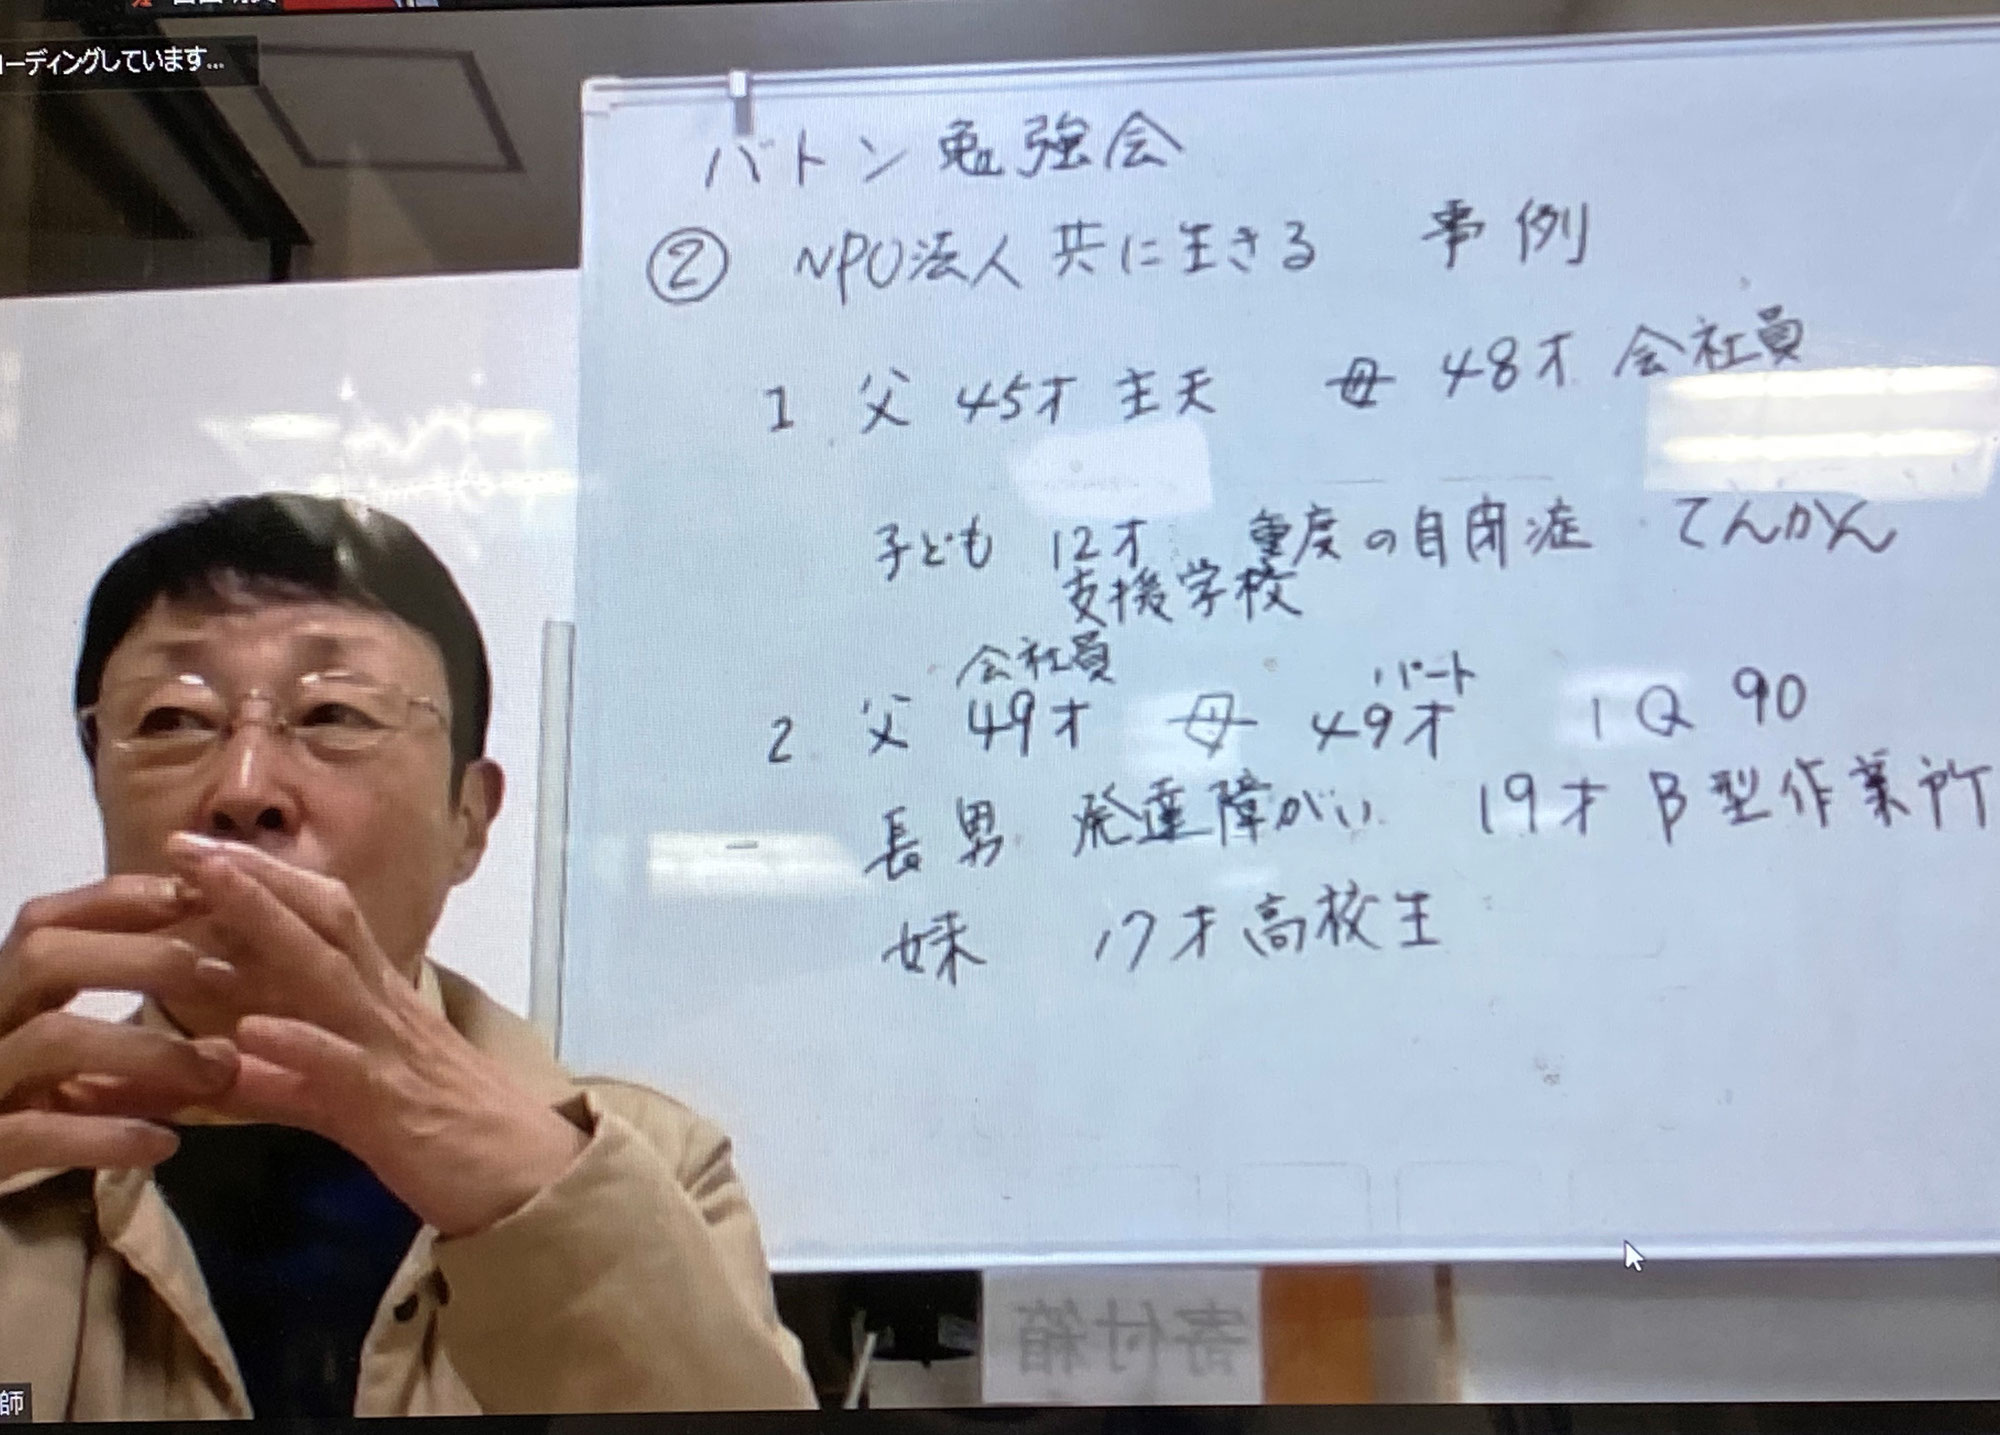 ーディングしています...
バトン勉強会
② NPO法人 共に生きる 事例
1 父 45才 主夫 母 48才 会社員
子ども 12才 重度の自閉症 てんかん
支援学校
会社員 パート
2 父 49才 母 49才 IQ 90
長男 発達障がい 19才 B型作業所
妹 17才 高校生
寄付箱
師